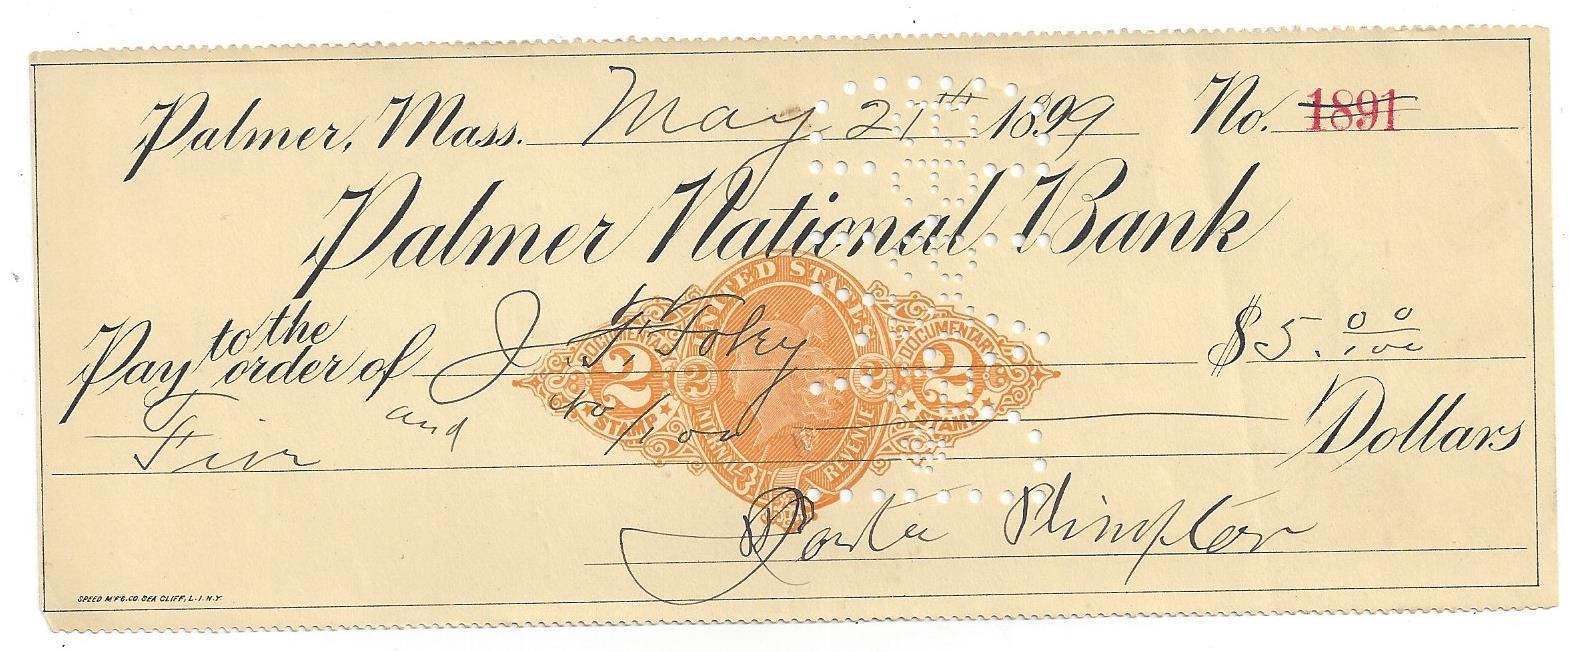 Palmer, Mass. May 27th 1899 No. 1891
Palmer National Bank
Pay to the order of J. F. Foley $5.00/100
Five and no/100 Dollars
UNITED STATES
INTERNAL REVENUE
DOCUMENTARY 2 STAMP
2 2
DOCUMENTARY 2 STAMP
Plimpton
SPEED M'F'G. CO. SEA CLIFF, L. I. N. Y.